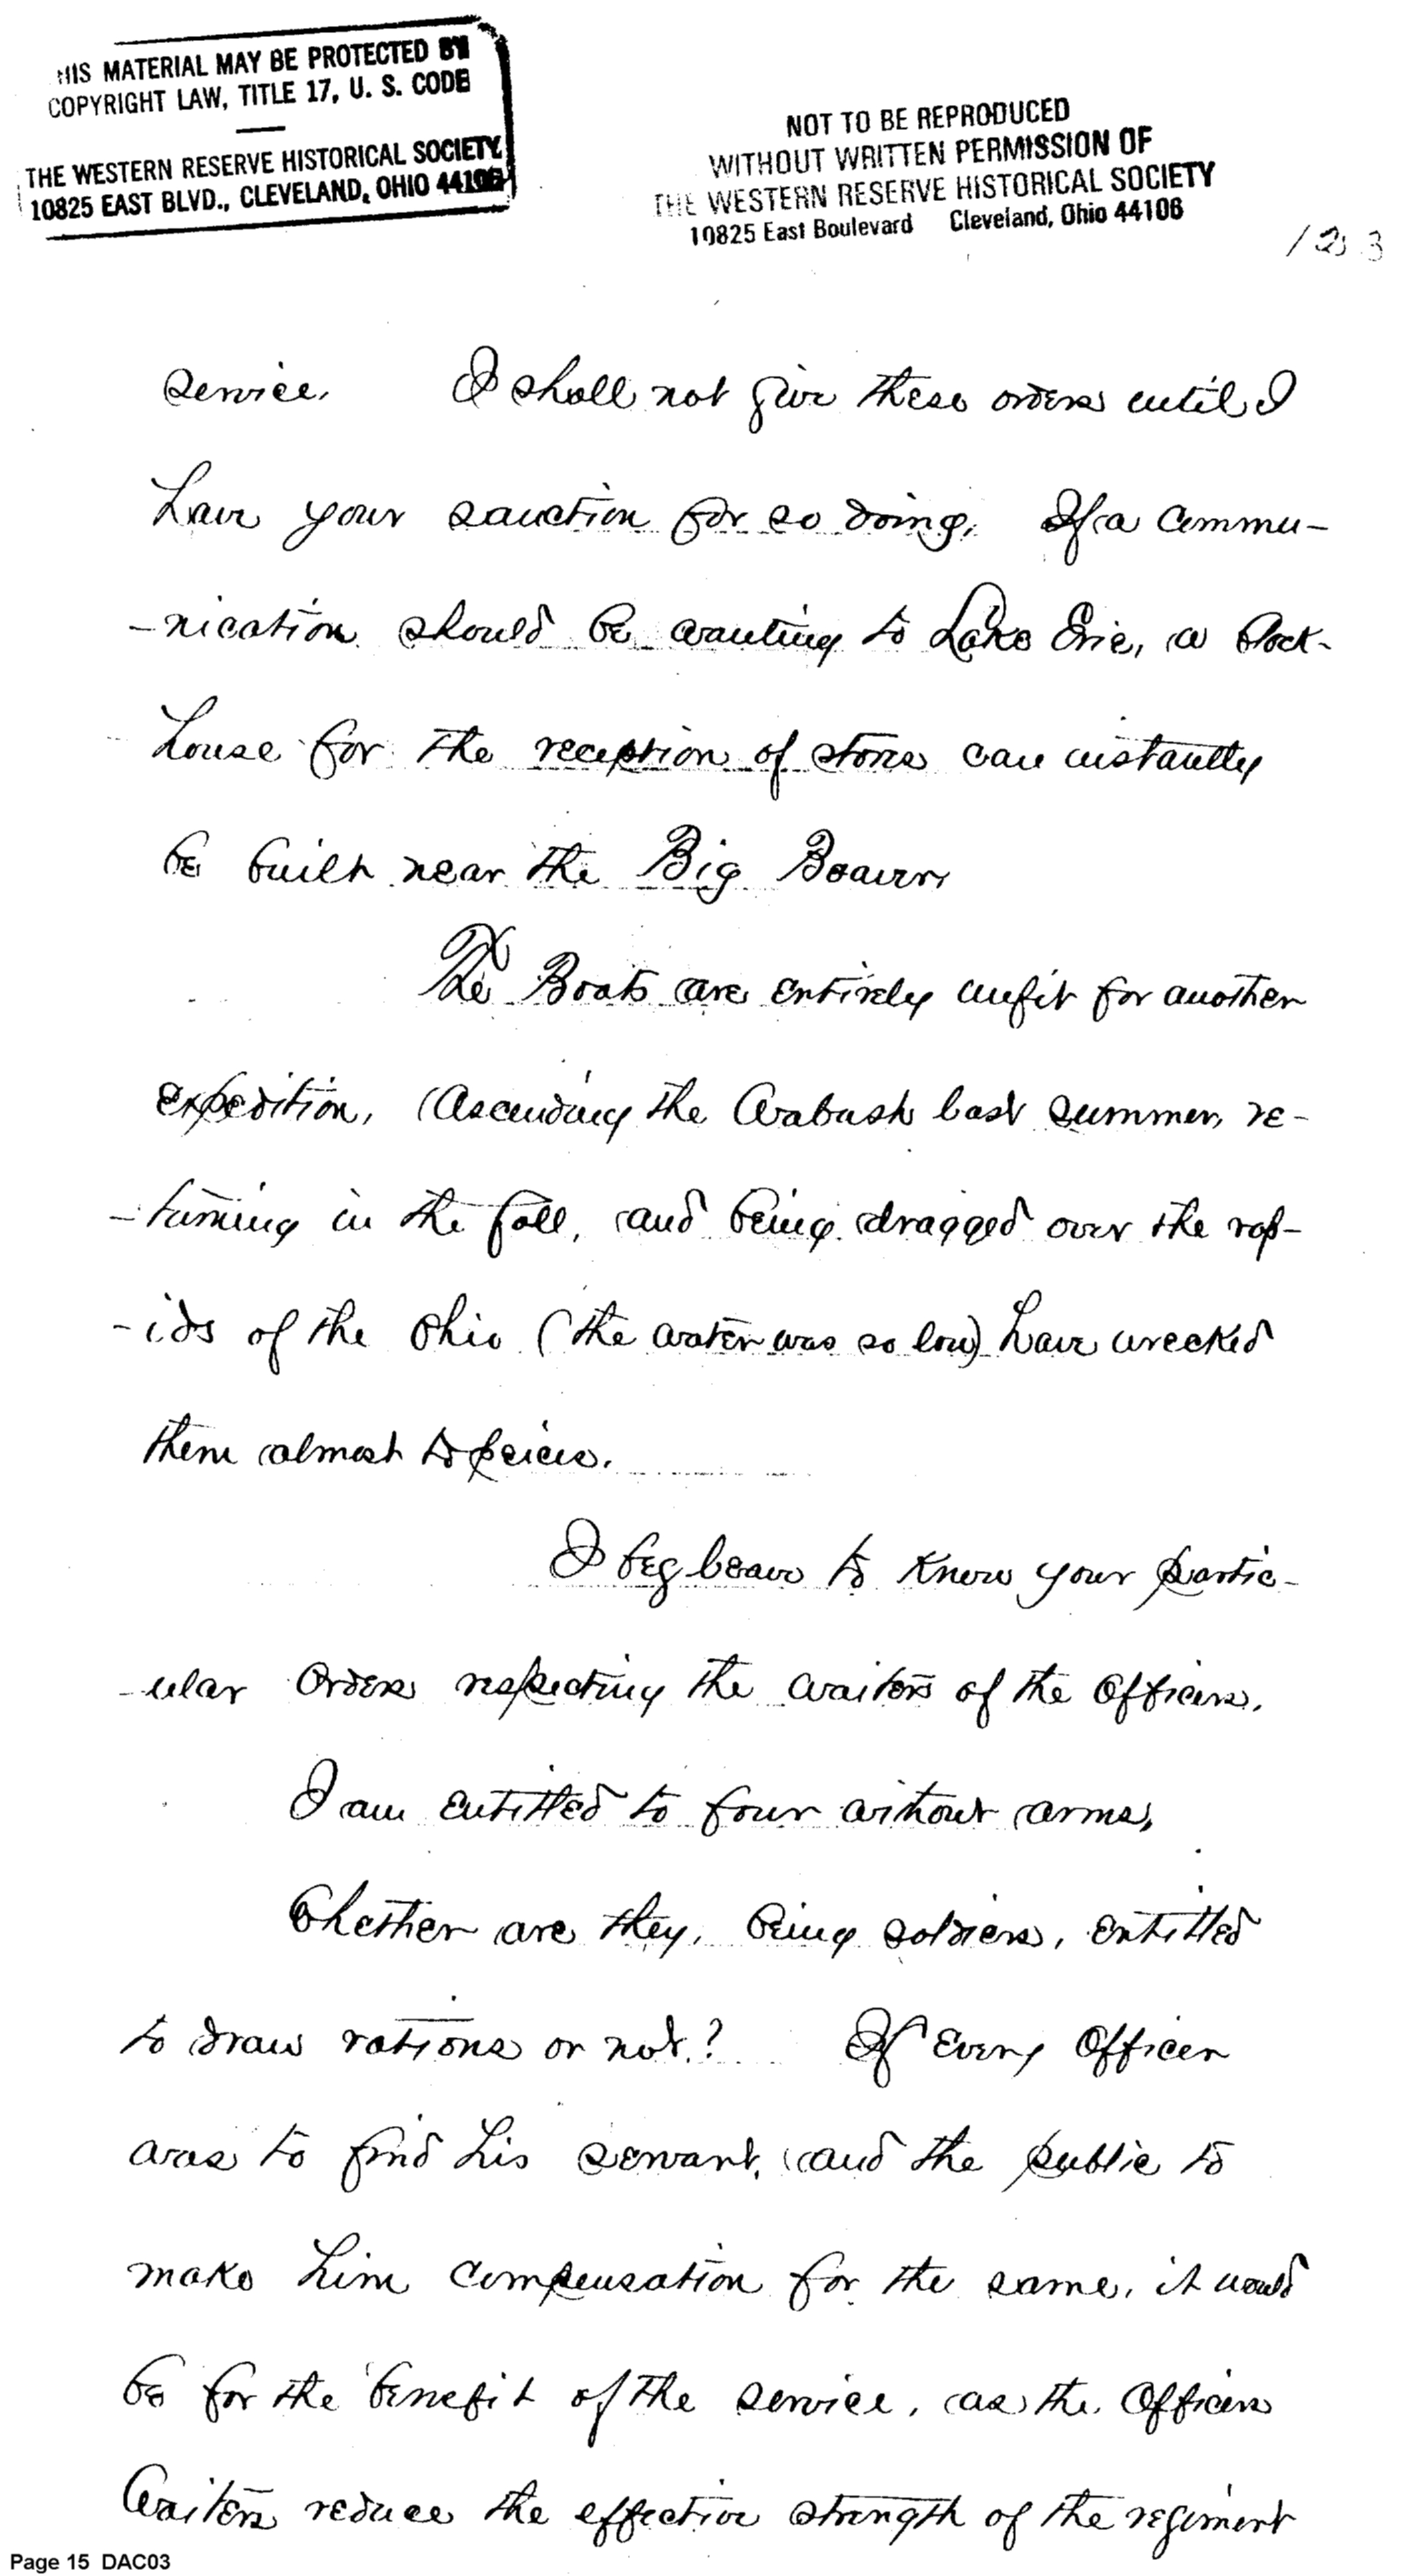 THIS MATERIAL MAY BE PROTECTED BY
COPYRIGHT LAW, TITLE 17, U. S. CODE
THE WESTERN RESERVE HISTORICAL SOCIETY
10825 EAST BLVD., CLEVELAND, OHIO 44106
NOT TO BE REPRODUCED
WITHOUT WRITTEN PERMISSION OF
THE WESTERN RESERVE HISTORICAL SOCIETY
10825 East Boulevard Cleveland, Ohio 44106
123
service. I shall not give these orders until I
have your sanction for so doing. If a commu-
-nication should be wanting to Lake Erie, a block-
house for the reception of stores can instantly
be built near the Big Beaver.
The Boats are entirely unfit for another
expedition, Ascending the Wabash last summer, re-
-turning in the fall, and being dragged over the rap-
-ids of the Ohio (the water was so low) have wrecked
them almost to peices.
I beg leave to know your partic-
-ular orders respecting the waiters of the Officers.
I am entitled to four without arms,
Whether are they, being soldiers, entitled
to draw rations or not? If Every Officer
was to find his servant, and the public to
make him compensation for the same, it would
be for the benefit of the service, as the Officers
Waiters reduce the effective strength of the regiment
Page 15 DAC03